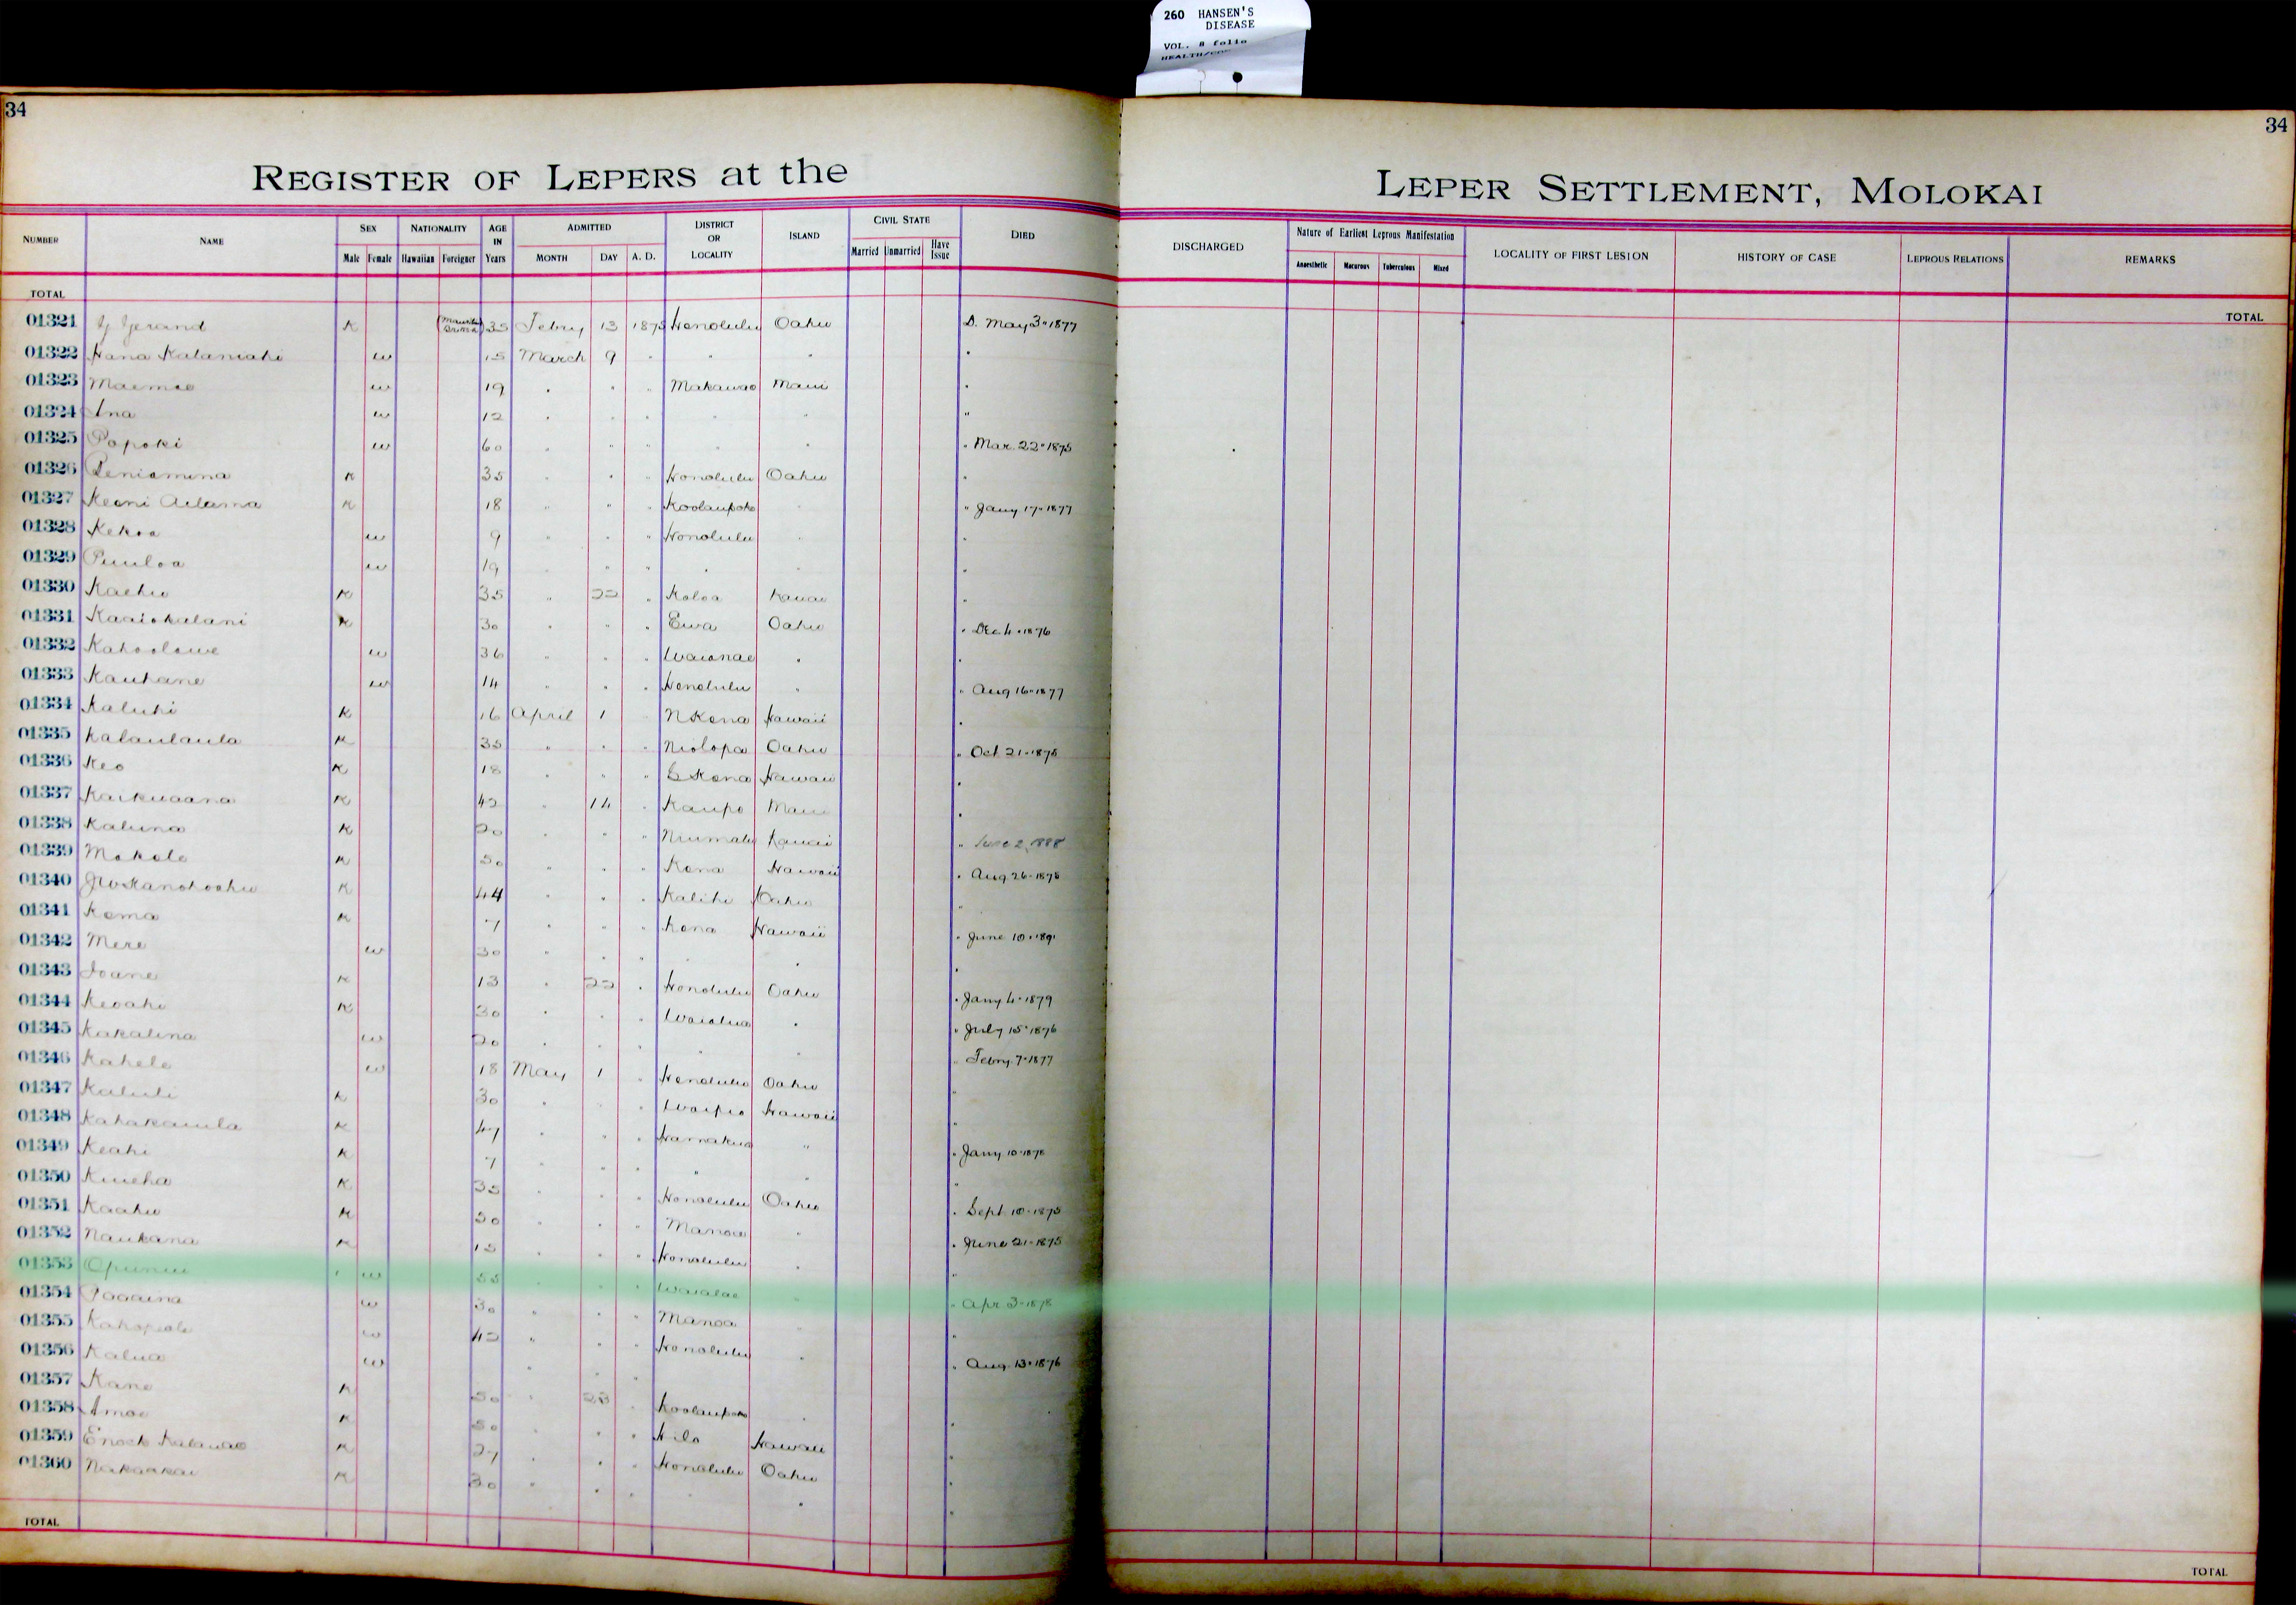 260 HANSEN'S
DISEASE
VOL. 8 folio
34
34
REGISTER OF LEPERS at the LEPER SETTLEMENT, MOLOKAI
NUMBER NAME SEX Male Female NATIONALITY Hawaiian Foreigner AGE IN Years ADMITTED MONTH DAY A. D. DISTRICT OR LOCALITY ISLAND CIVIL STATE Married Unmarried Have Issue DIED DISCHARGED Nature of Earliest Leprous Manifestation Anaesthetic Macurous Tuberculous Mixed LOCALITY OF FIRST LESION HISTORY OF CASE LEPROUS RELATIONS REMARKS
TOTAL TOTAL
01321 Gerand K 35 Febry 13 1875 Honolulu Oahu D. May 3 " 1877
01322 Hana w 15 March 9 " " " "
01323 Maemae w 19 " " " Makawao Maui "
01324 Ina w 12 " " " " " "
01325 Popoki w 60 " " " " " " Mar. 22 " 1875
01326 Peniamina K 35 " " " Honolulu Oahu "
01327 Keoni Adama K 18 " " " Koolaupoko " " Jany 17 " 1877
01328 Kekoa w 9 " " " Honolulu " "
01329 Puuloa w 19 " " " " " "
01330 Kaehu K 35 " 22 " Koloa Kauai "
01331 Kaaiokalani K 30 " " " Ewa Oahu " Dec 4 " 1876
01332 Kahoolawe w 36 " " " Waianae " "
01333 Kauhane w 14 " " " Honolulu " " Aug 16 " 1877
01334 Kaluhi K 16 April 1 " N Kona Hawaii "
01335 Kalaulaula K 35 " " " Niolopa Oahu " Oct 21 " 1875
01336 Keo K 18 " " " S Kona Hawaii "
01337 Kaikuaana K 42 " 14 " Kaupo Maui "
01338 Kaluna K 20 " " " Niumalu Kauai " June 2, 1888
01339 Makole K 50 " " " Kona Hawaii " Aug 26 " 1878
01340 K 44 " " " Kalihi Oahu "
01341 Koma K 7 " " " Kona Hawaii " June 10 " 1891
01342 Mere w 30 " " " " " "
01343 Ioane K 13 " 22 " Honolulu Oahu " Jany 4 " 1879
01344 Keoahi K 30 " " " Waialua " " July 15 " 1876
01345 Kakalina w 20 " " " " " " Febry. 7 " 1877
01346 Kahele w 18 May 1 " Honolulu Oahu "
01347 Kaluli K 30 " " " Waipio Hawaii "
01348 Kahakauila K 47 " " " Hamakua " " Jany 10 " 1878
01349 Keahi K 7 " " " " " "
01350 Kuueha K 35 " " " Honolulu Oahu " Sept 10 " 1875
01351 Kaahu K 50 " " " Manoa " " June 21 " 1875
01352 Naukana K 15 " " " Honolulu " "
01353 Opunui w 55 " " " Waialae " " Apr. 3 " 1878
01354 Paaaina w 30 " " " Manoa " "
01355 w 42 " " " Honolulu " " Aug. 13 " 1876
01356 Kalua w " " "
01357 Kane K 50 " 28 " Koolaupoko " "
01358 Amoe K 50 " " " Hilo Hawaii "
01359 Enoch Kalauao K 27 " " " Honolulu Oahu "
01360 Nakaakai K 30 " " " " " "
TOTAL TOTAL